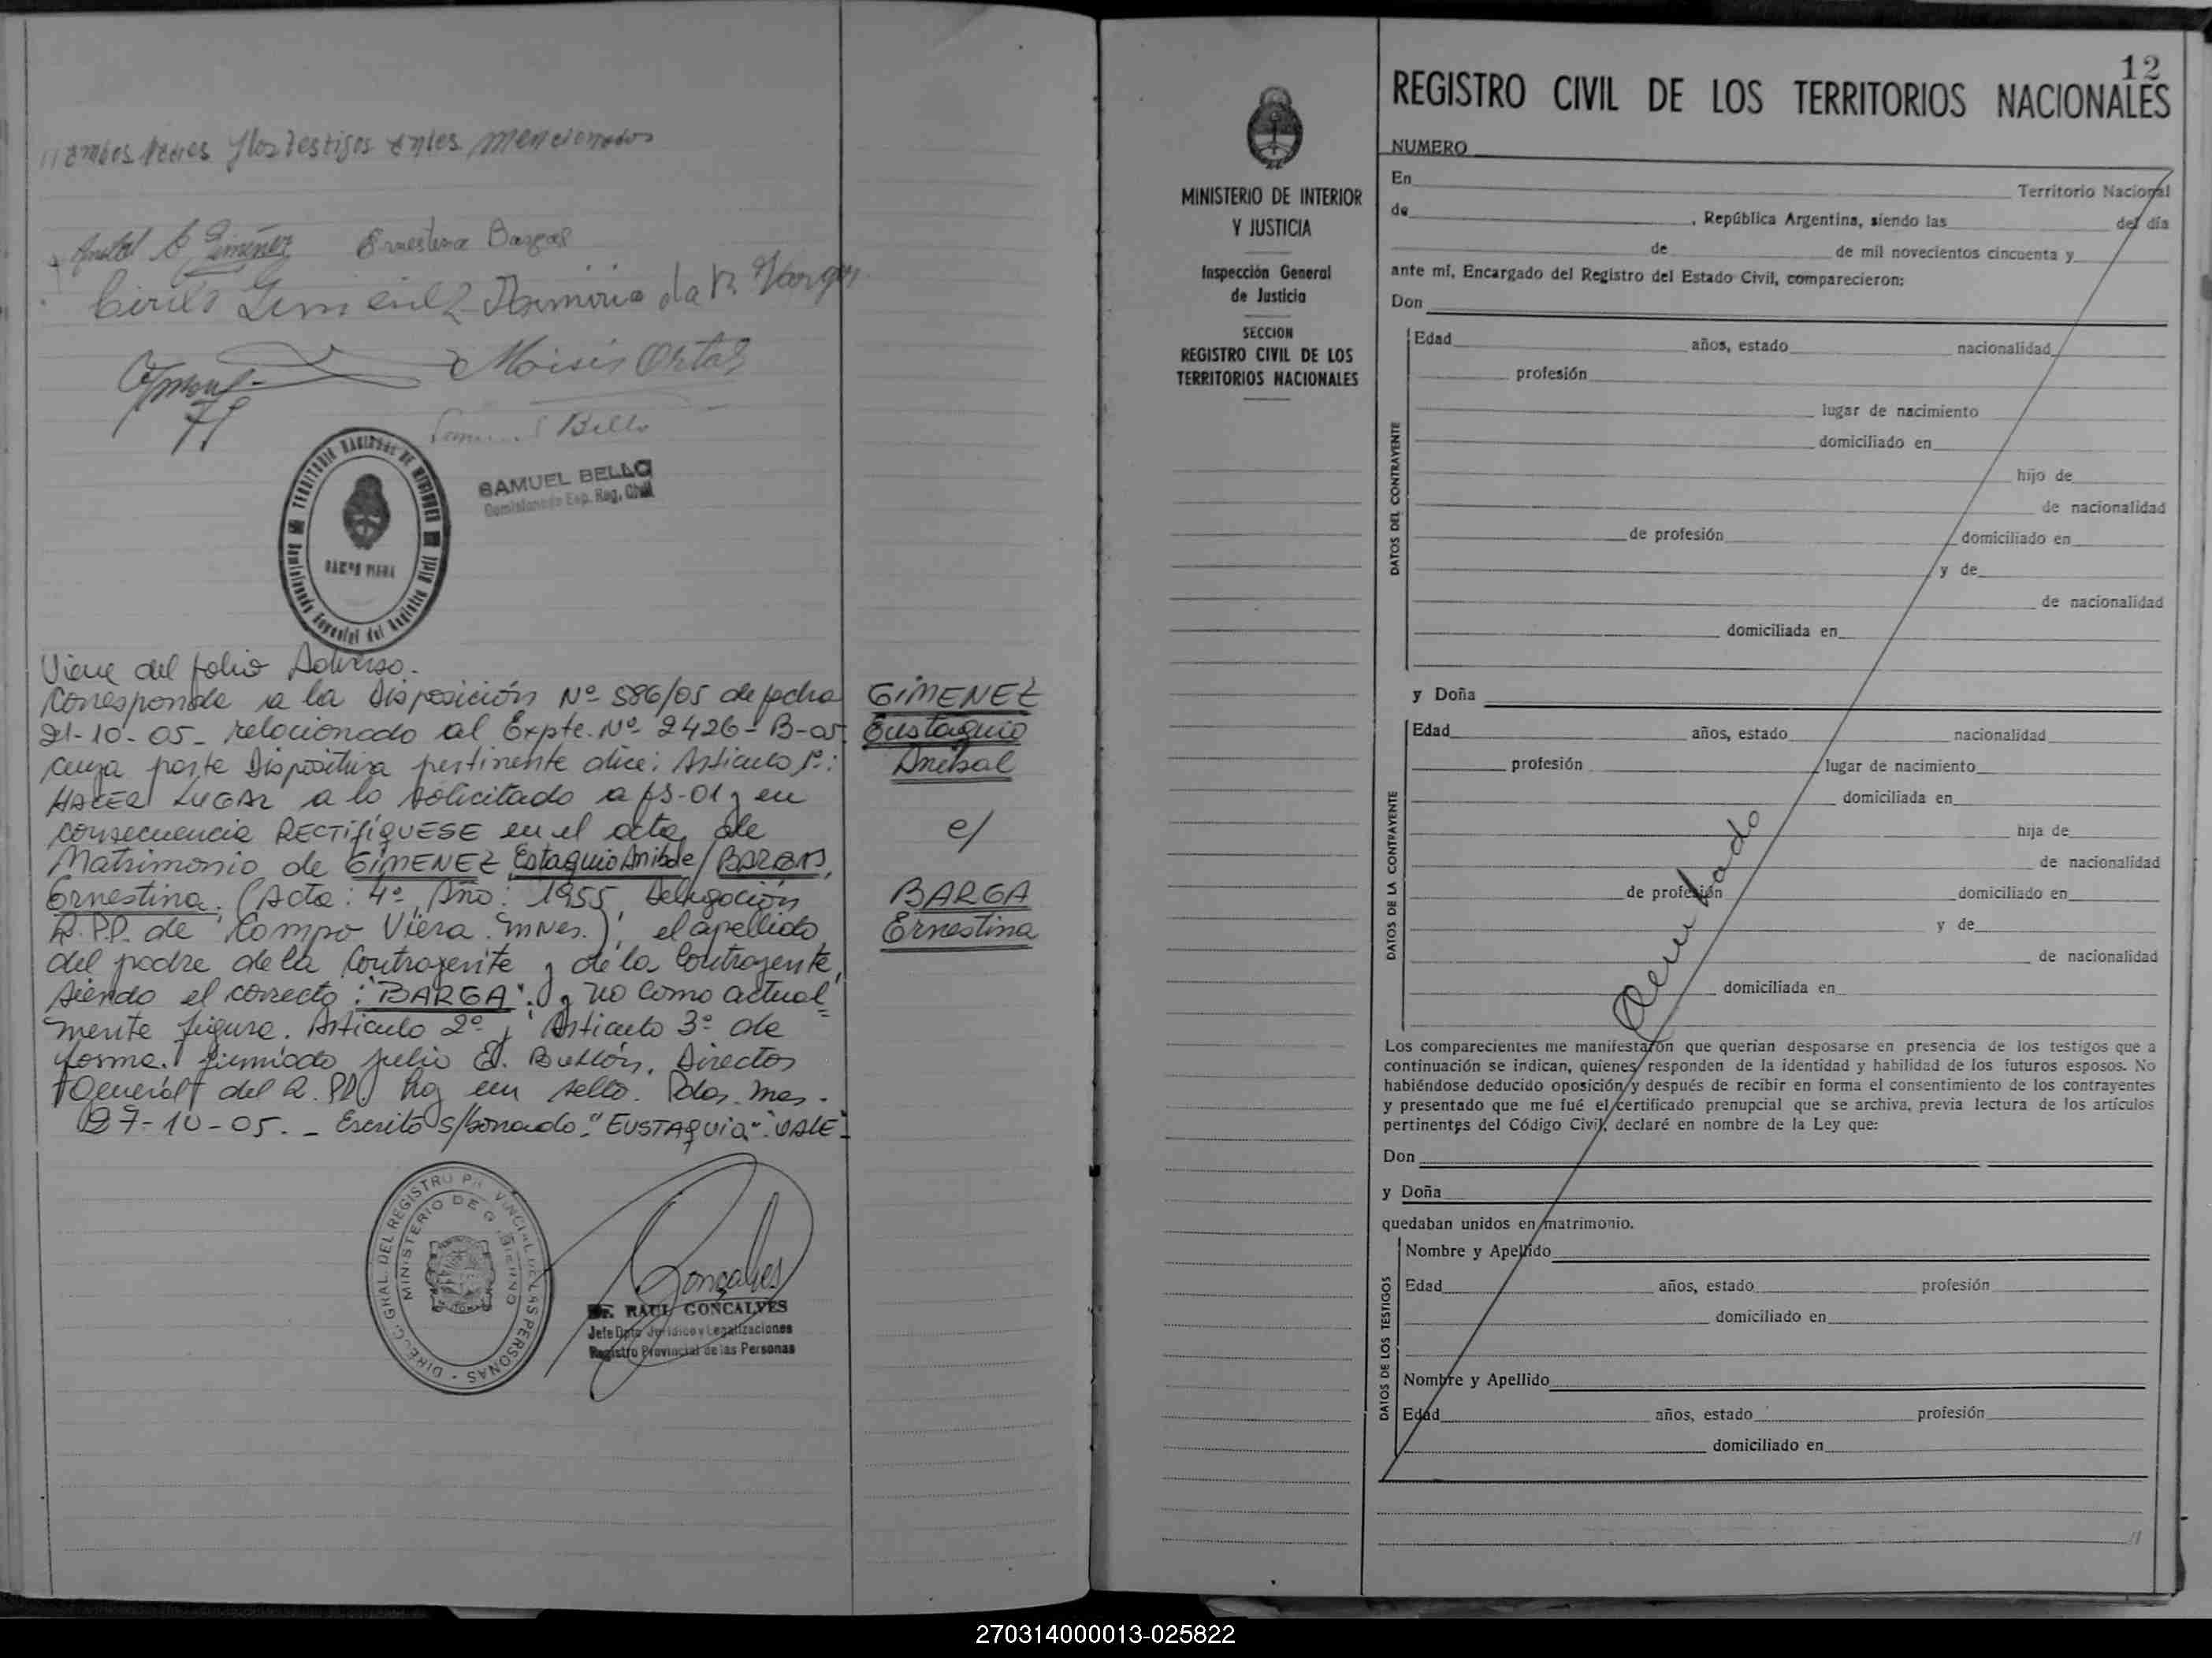 ambos Padres y los Testigos antes mencionados
Anibal E Gimenez Ernestina Bargas
Cirilo Gimenez Ramirio da R. Vargas
Moisis Ortas
Bello
SAMUEL BELLO
Comisionado Esp. Reg. Civil
TERRITORIO NACIONAL DE MISIONES
CAMPO VIERA
Comisionado Especial del Registro Civil
Viene del folio Adverso.
Corresponde a la Disposición Nº 586/05 de fecha
21-10-05- relacionado al Expte. Nº 2426-B-05
cuya parte Dispositiva pertinente dice: Artículo 1º:
HACER LUGAR a lo solicitado a fs-01 y en
consecuencia RECTIFÍQUESE en el acta de
Matrimonio de GIMENEZ Estaquio Anibal e/ BARGAS,
Ernestina. (Acta: 4º, Año: 1955, Delegación
R.P.P. de Campo Viera. Mnes.), el apellido
del padre de la Contrayente y de la Contrayente,
siendo el correcto: "BARGA". y no como actual=
mente figura. Artículo 2º y Artículo 3º de
forma. firmado Julio E. Directos
General del R.PP. Hay un sello. Pdas. Mnes.
27-10-05. - Escrito s/borrado: "EUSTAQUIO": VALE-
GIMENEZ
Eustaquio
Anibal
e/
BARGA
Ernestina
DIREC. GRAL. DEL REGISTRO PROVINCIAL DE LAS PERSONAS
MINISTERIO DE GOBIERNO
Goncalves
Dr. RAUL GONCALVES
Jefe Dpto Jurídico y Legalizaciones
Registro Provincial de las Personas
12
MINISTERIO DE INTERIOR
Y JUSTICIA
Inspección General
de Justicia
SECCION
REGISTRO CIVIL DE LOS
TERRITORIOS NACIONALES
REGISTRO CIVIL DE LOS TERRITORIOS NACIONALES
NUMERO
En Territorio Nacional
de , República Argentina, siendo las del día
de de mil novecientos cincuenta y
ante mí, Encargado del Registro del Estado Civil, comparecieron:
Don
DATOS DEL CONTRAYENTE
Edad años, estado nacionalidad
profesión
lugar de nacimiento
domiciliado en
hijo de
de nacionalidad
de profesión domiciliado en
y de
de nacionalidad
domiciliada en
y Doña
DATOS DE LA CONTRAYENTE
Edad años, estado nacionalidad
profesión lugar de nacimiento
domiciliada en
hija de
de nacionalidad
de profesión domiciliado en
y de
de nacionalidad
domiciliada en
Los comparecientes me manifestaron que querían desposarse en presencia de los testigos que a
continuación se indican, quienes responden de la identidad y habilidad de los futuros esposos. No
habiéndose deducido oposición y después de recibir en forma el consentimiento de los contrayentes
y presentado que me fué el certificado prenupcial que se archiva, previa lectura de los artículos
pertinentes del Código Civil, declaré en nombre de la Ley que:
Don
y Doña
quedaban unidos en matrimonio.
DATOS DE LOS TESTIGOS
Nombre y Apellido
Edad años, estado profesión
domiciliado en
Nombre y Apellido
Edad años, estado profesión
domiciliado en
270314000013-025822